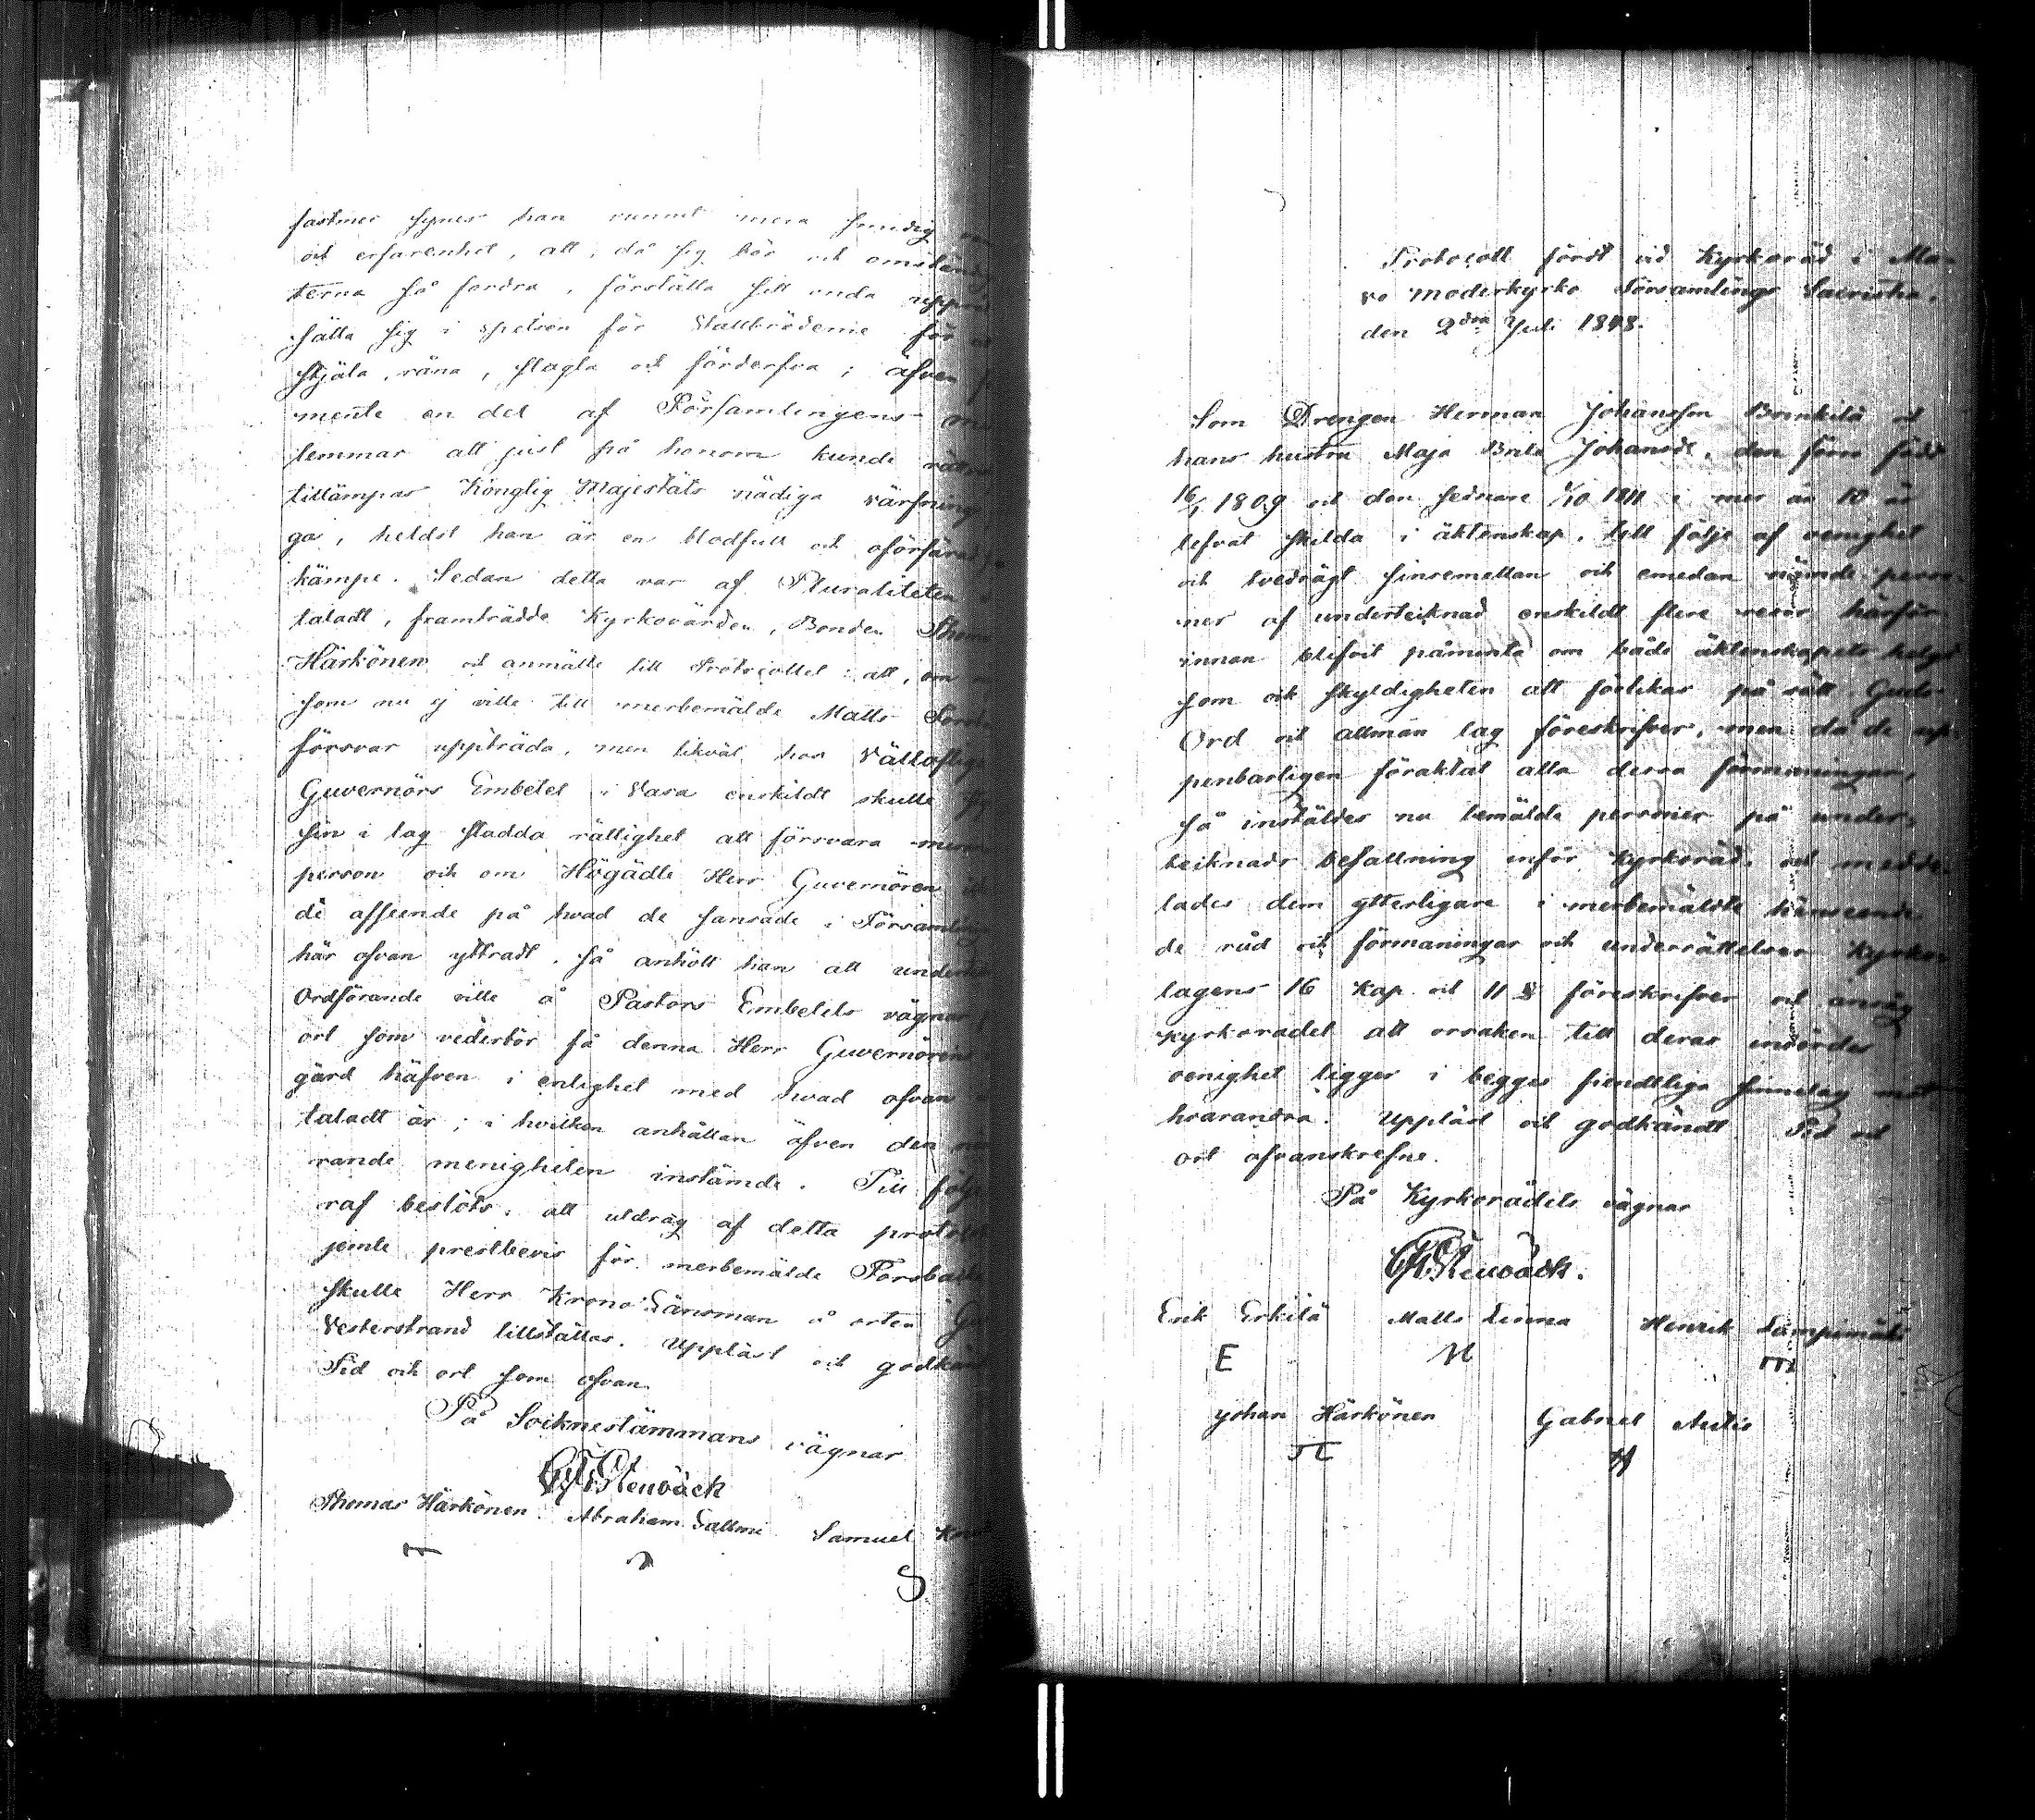 fastmer synes han vunnit mera smidig
och erfarenhet, att, då sig bör och omständig
terna så fordra, förställa sitt onda uppsåt
sätta sig i spetsen för Stallbröderne för at
stjäla, råna, slagta och förderfva; äfven
mente en del af Församlingens
lemmar att just på honom kunde
tillämpas Konglig Majestäts nådiga värfning
ga, heldst han är en blodfull och oförfärad
kämpe. Sedan detta var af Pluraliteten
taladt, framträdde Kyrkovärden, Bonden Thomas
Härkönen och anmälte till Protocollet: att, om
som nu ej ville till merbemälde Matts
försvar uppträda, men likväl hos Vällofliga
Guvernörs Embetet i Vasa enskildt skulle
sin i lag stadda rättighet att försvara
person och om Högädle Herr Guvernören
de afseende på hvad de sansade i Församlingen
här ofvan yttradt, så anhöll han att
Ordförande ville å Pastors Embetets vägnar
ort som vederbör få denna Herr Guvernörens
gärd häfven i enlighet med hvad ofvan
taladt är; i hvilken anhållan äfven den
rande menigheten instämde. Till följe
raf beslöts: att utdrag af detta protocoll
jemte prestbevis för merbemälde Forsbacka
skulle Herr Krono Länsman å orten
Vesterstrand tillställas. Uppläst och godkändt
Tid och ort som ofvan.
På Socknestämmans vägnar
Stenbäck
Thomas Härkönen Abraham Sallmi Samuel
S
Protocoll fördt vid Kyrkoråd i
vo Moderkyrko Församlings Sacristia,
den 2dra Juli 1848.
Som Drengen Herman Johansson och
hans hustru Maja Brita Johansdr, den förre född
16/1 1809 och den sednare 1/10 1811 i mer än 10 år
lefvat skilda i äktenskap, till följe af oenighet
och tvedrägt sinsemellan och emedan nämnde perso
ner af undertecknad enskildt flere resor härför
innan blifvit påminta om både äktenskapets helgd
som och skyldigheten att förlikas på sätt Guds
Ord och allmän lag föreskrifver, men då de up
penbarligen föraktat alla dessa förmaningar,
så instäldes nu bemälde personer på under-
tecknads befallning inför Kyrkoråd, och medde-
lades dem ytterligare i merbemälte hänseende
de råd och förmaningar och underrättelser Kyrko
lagens 16 Kap. och 11 § föreskrifver och ansåg
Kyrkorådet att orsaken till deras inbördes
oenighet ligger i begges fiendtliga sinnelag mot
hvarandra. Uppläst och godkändt. Tid och
ort ofvanskrefne.
På Kyrkorådets vägnar
Stenbäck.
Erik Erkilä Matts Linna Henrik Lampimäki
E M m
Johan Härkönen Gabriel Antis